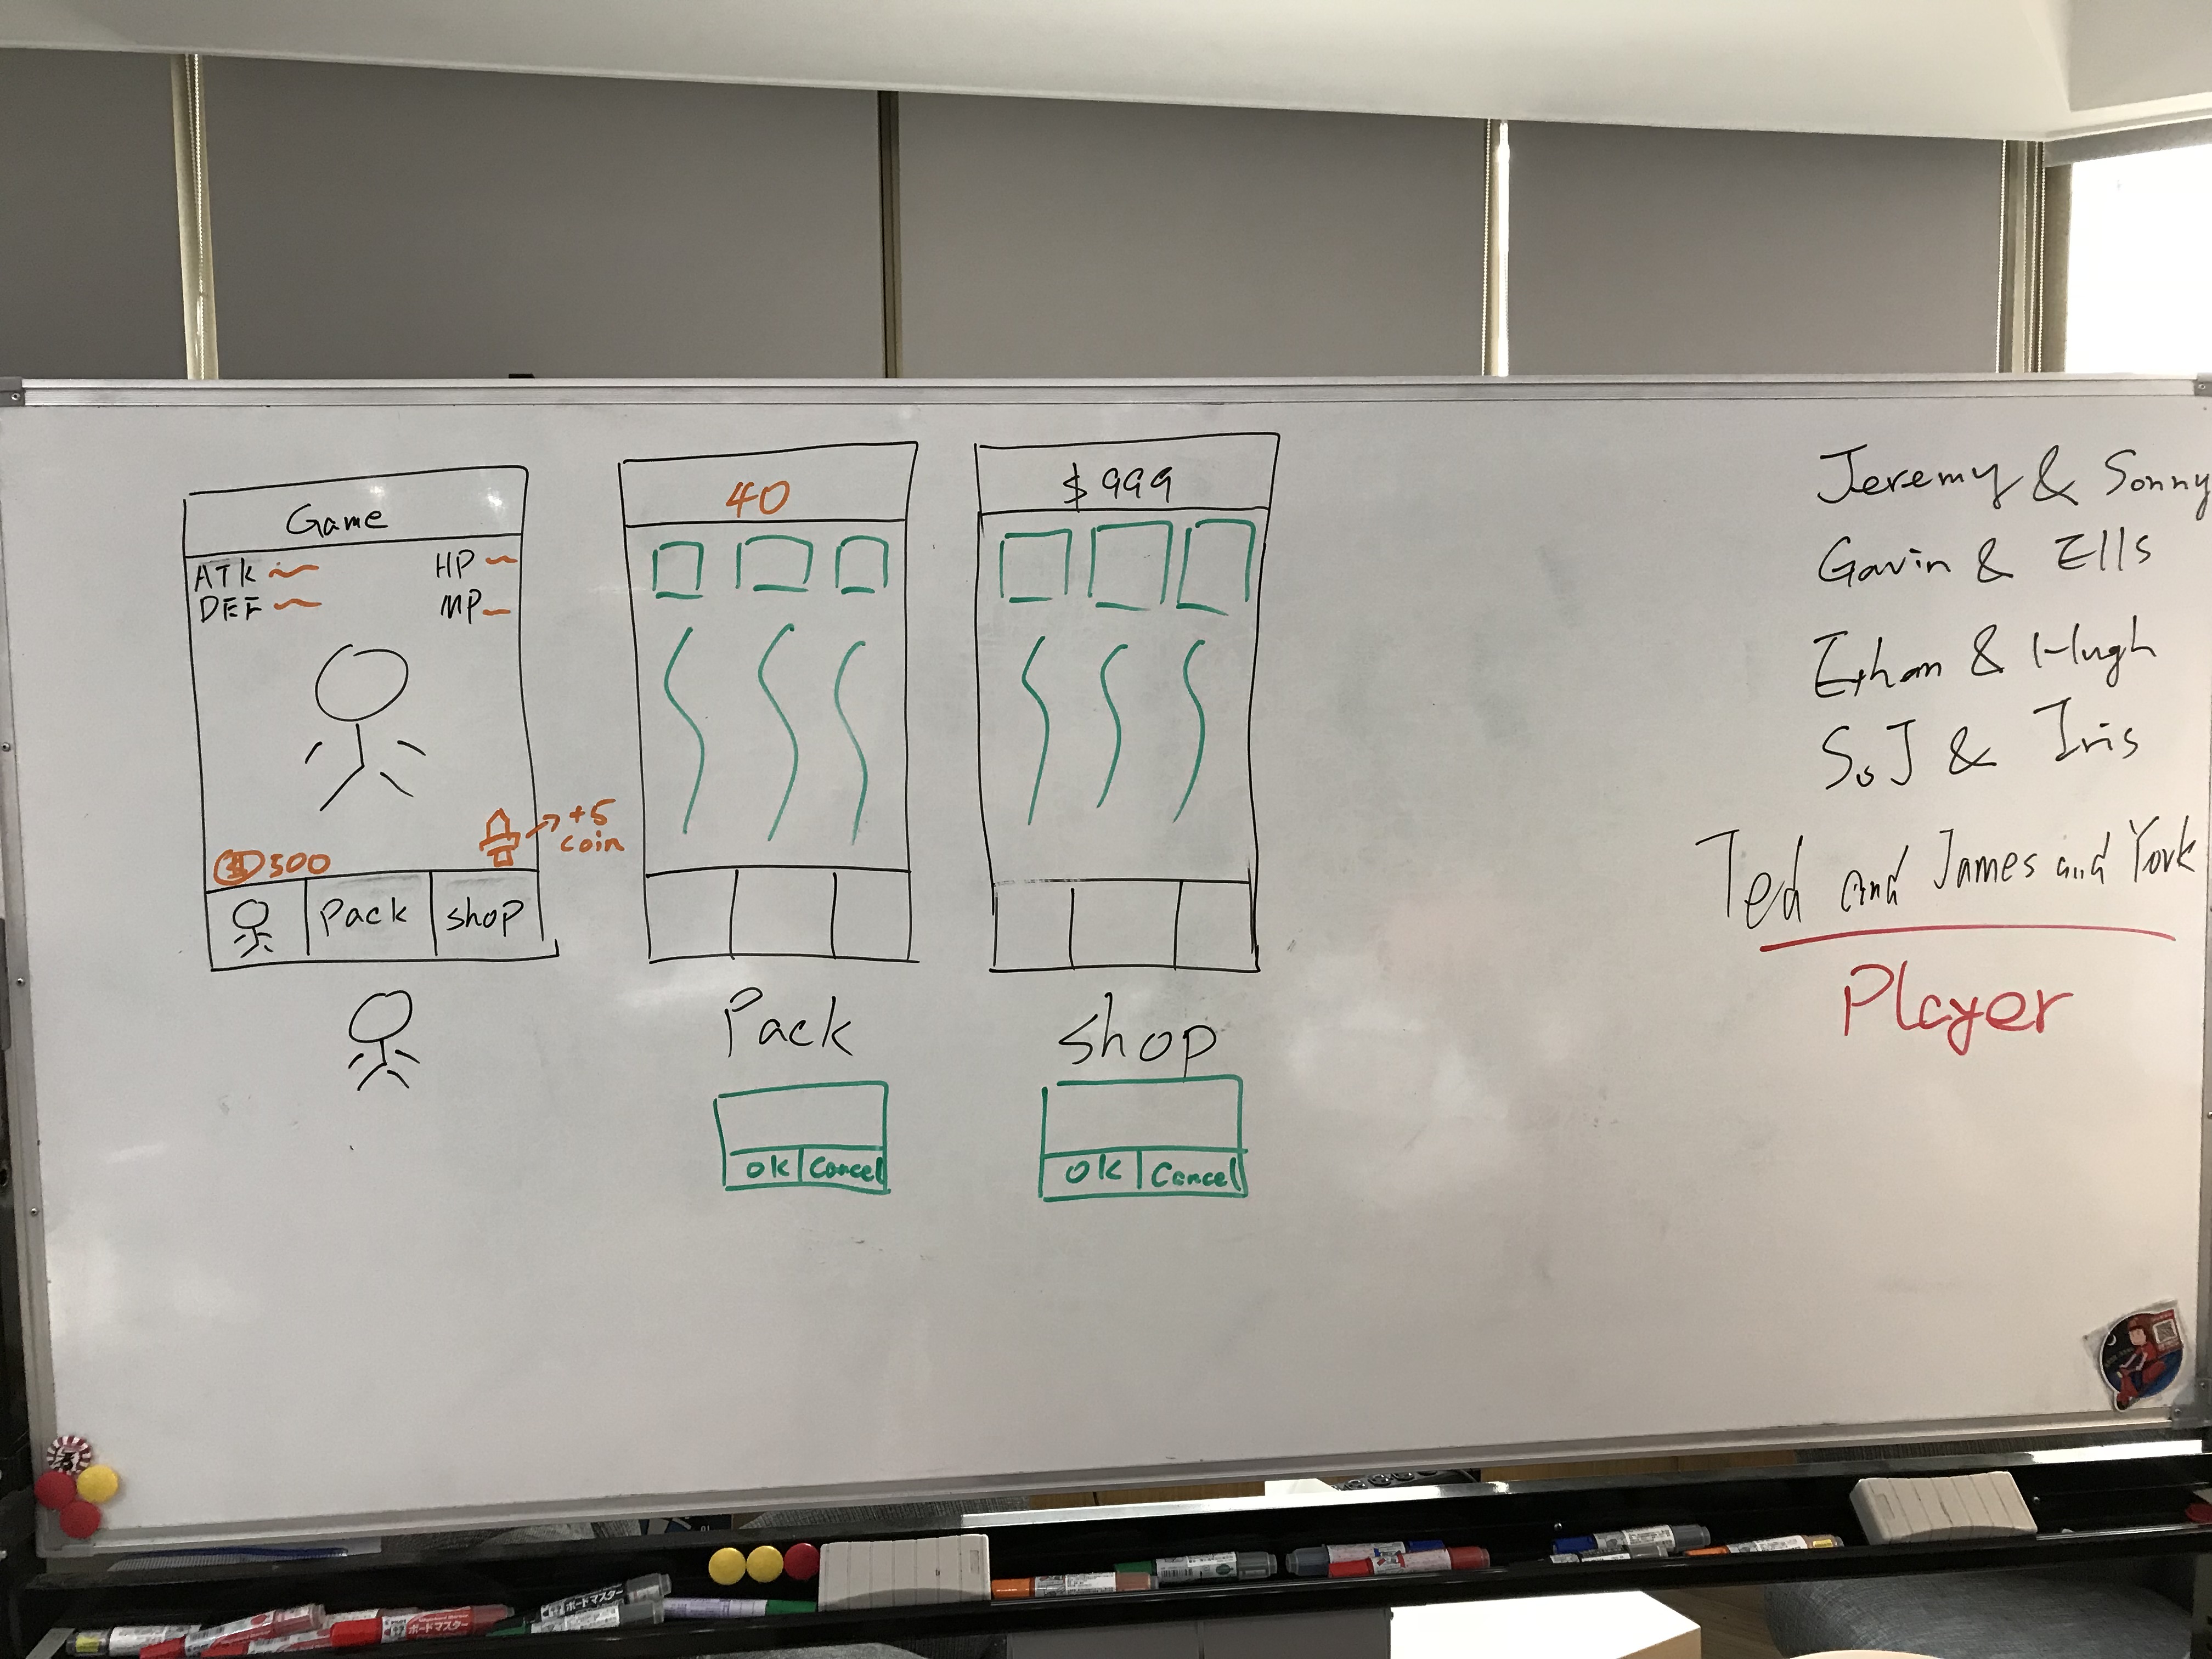 Game
ATK
HP
DEF
MP
+5
coin
$500
Pack
shop
40
Pack
OK Cancel
$999
shop
OK Cancel
Jeremy & Sonny
Gavin & Ells
Ethan & Hugh
S.J & Iris
Ted and James and York
Player
ボードマスター
ボードマスター